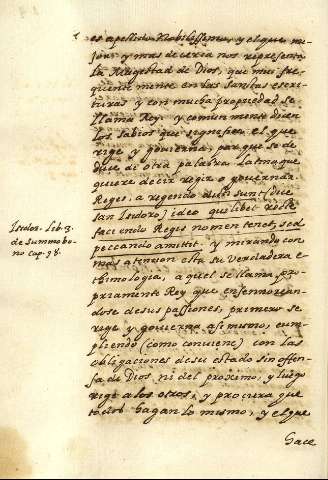 es apellido Nobilissimo, y el que me-
jor y mas de cerca nos representa
la Magestad de Dios, que mui fre-
quente mente en las Santas escri-
turas y con mucha propriedad se
llama Rey. y comun mente dicen
los sabios que significa el que
rige y govierna, porque se de-
duce de otra palabra Latina que
quiere decir regir o governar
Reges, a regendo dicti sunt (dice
san Isidoro) ideo quilibet recte
faciendo Regis nomen tenet, sed
peccando amittit. y mirando con
mas atension esta su verdadera e-
thimologia, a quel se llama pro-
priamente Rey que ensenorean-
dose de sus passiones, primero se
rige y govierna asi mismo, cum-
pliendo (como conviene) con las
obligaciones de su estado sin offen-
sa de Dios ni del proximo, y luego
rige a los otros, y procura que
todos hagan lo mismo, y el que
hace
Isidor. Lib. 3.
de summo bo-
no cap. 98.